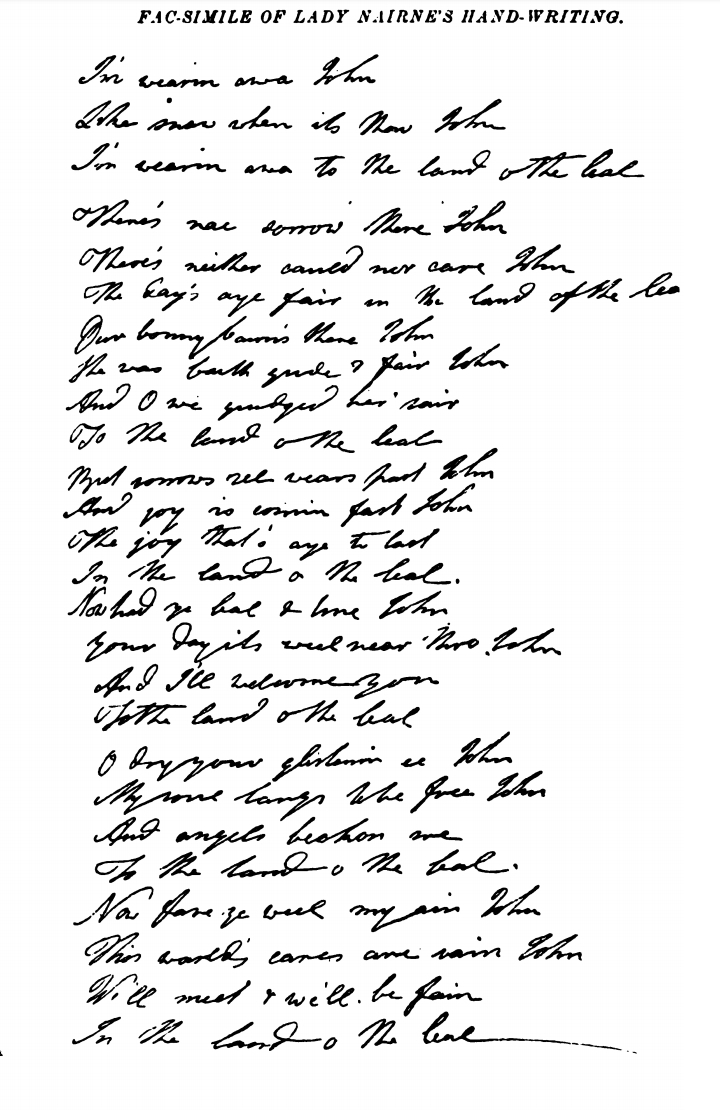 FAC-SIMILE OF LADY NAIRNE'S HAND-WRITING.
I'm wearin awa John
Like snaw when its thaw John
I'm wearin awa to the land o the leal
There's nae sorrow there John
There's neither cauld nor care John
The day's aye fair in the land of the lea
Our bonny bairn's there John
She was baith gude & fair John
And O we grudged her sair
To the land o the leal
But sorrows sel wears past John
And joy is comin fast John
The joy that's aye to last
In the land o the leal.
Now had ye leal & true John
Your day its weel near thro John
And I'll welcome you
To the land o the leal
O dry your glistenin ee John
My soul langs to be free John
And angels beckon me
To the land o the leal.
Now fare ye weel my ain John
This world's cares are vain John
We'll meet & we'll be fain
In the land o the leal